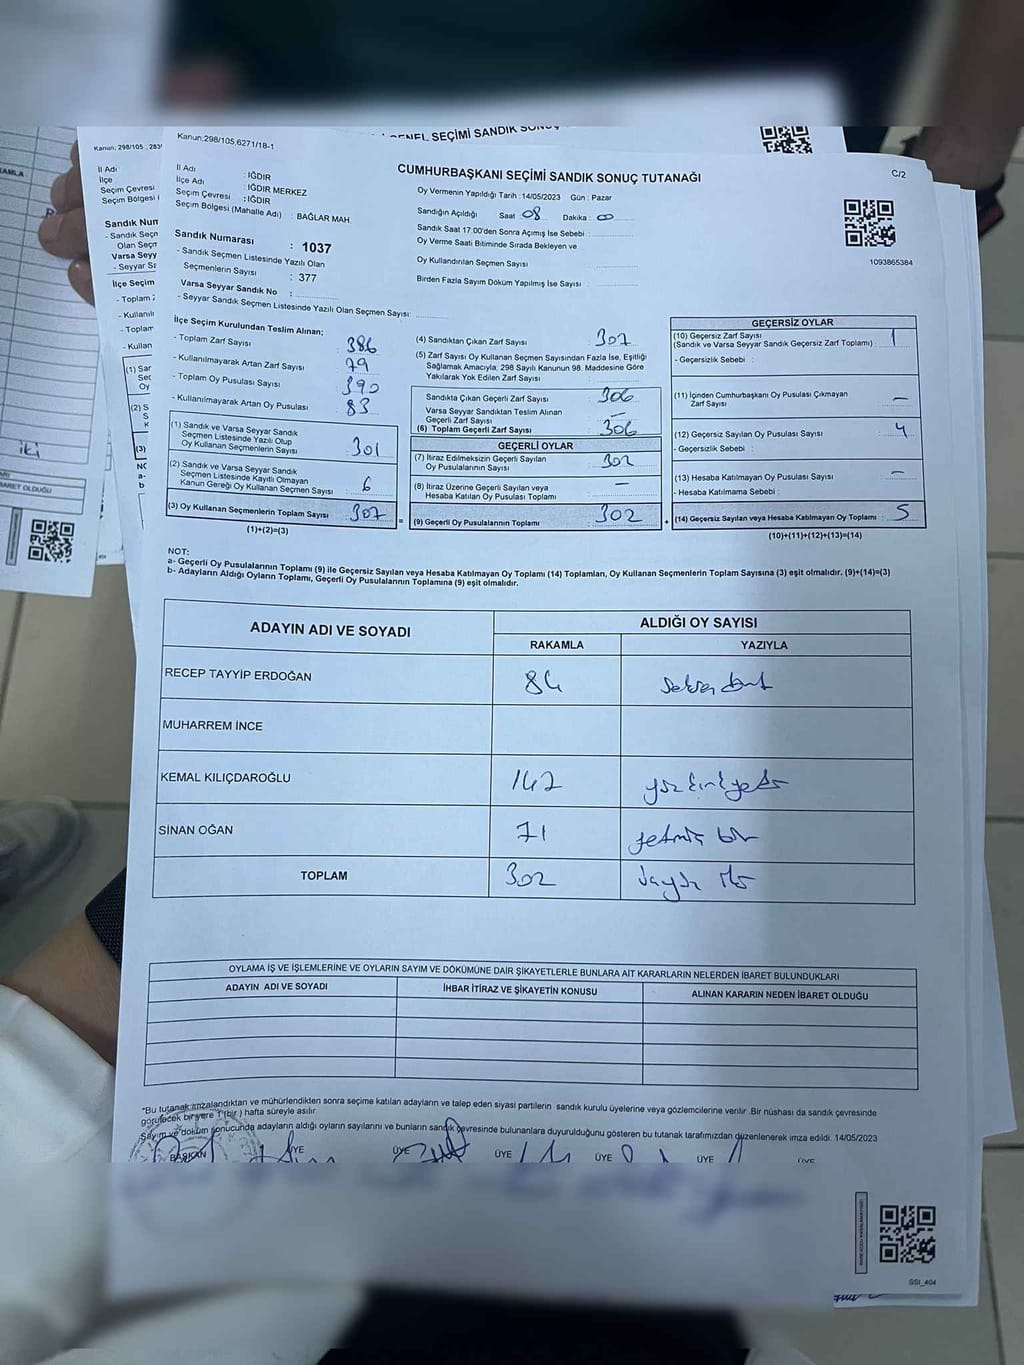 GENEL SEÇİMİ SANDIK SONUÇ
Kanun: 298/105
İl Adı
İlçe
Seçim Çevresi
Seçim Bölgesi
Sandık Num
Kanun:298/105.6271/18-1
C/2
CUMHURBAŞKANI SEÇİMİ SANDIK SONUÇ TUTANAĞI
İl Adı : IĞDIR
İlçe Adı : IĞDIR MERKEZ
Seçim Çevresi : IĞDIR
Seçim Bölgesi (Mahalle Adı) : BAĞLAR MAH.
Sandık Numarası : 1037
- Sandık Seçmen Listesinde Yazılı Olan
Seçmenlerin Sayısı : 377
Varsa Seyyar Sandık No :
- Seyyar Sandık Seçmen Listesinde Yazılı Olan Seçmen Sayısı:
Oy Vermenin Yapıldığı Tarih :14/05/2023 Gün : Pazar
Sandığın Açıldığı Saat 08 Dakika : 00
Sandık Saat 17:00'den Sonra Açımış İse Sebebi :
Oy Verme Saati Bitiminde Sırada Bekleyen ve
Oy Kullandırılan Seçmen Sayısı :
Birden Fazla Sayım Döküm Yapılmış İse Sayısı :
1093865384
İlçe Seçim Kurulundan Teslim Alınan;
- Toplam Zarf Sayısı : 386
- Kullanılmayarak Artan Zarf Sayısı : 79
- Toplam Oy Pusulası Sayısı : 390
- Kullanılmayarak Artan Oy Pusulası : 83
(1) Sandık ve Varsa Seyyar Sandık
Seçmen Listesinde Yazılı Olup
Oy Kullanan Seçmenlerin Sayısı : 301
(2) Sandık ve Varsa Seyyar Sandık
Seçmen Listesinde Kayıtlı Olmayan
Kanun Gereği Oy Kullanan Seçmen Sayısı : 6
(3) Oy Kullanan Seçmenlerin Toplam Sayısı : 307
(1)+(2)=(3)
(4) Sandıktan Çıkan Zarf Sayısı : 307
(5) Zarf Sayısı Oy Kullanan Seçmen Sayısından Fazla İse, Eşitliği
Sağlamak Amacıyla; 298 Sayılı Kanunun 98. Maddesine Göre
Yakılarak Yok Edilen Zarf Sayısı :
Sandıkta Çıkan Geçerli Zarf Sayısı : 306
Varsa Seyyar Sandıktan Teslim Alınan
Geçerli Zarf Sayısı : –
(6) Toplam Geçerli Zarf Sayısı : 306
GEÇERLİ OYLAR
(7) İtiraz Edilmeksizin Geçerli Sayılan
Oy Pusulalarının Sayısı : 302
(8) İtiraz Üzerine Geçerli Sayılan veya
Hesaba Katılan Oy Pusulası Toplamı : –
(9) Geçerli Oy Pusulalarının Toplamı : 302
GEÇERSİZ OYLAR
(10) Geçersiz Zarf Sayısı
(Sandık ve Varsa Seyyar Sandık Geçersiz Zarf Toplamı) : 1
- Geçersizlik Sebebi :
(11) İçinden Cumhurbaşkanı Oy Pusulası Çıkmayan
Zarf Sayısı : –
(12) Geçersiz Sayılan Oy Pusulası Sayısı : 4
- Geçersizlik Sebebi :
(13) Hesaba Katılmayan Oy Pusulası Sayısı : –
- Hesaba Katılmama Sebebi :
(14) Geçersiz Sayılan veya Hesaba Katılmayan Oy Toplamı : 5
(10)+(11)+(12)+(13)=(14)
NOT:
a- Geçerli Oy Pusulalarının Toplamı (9) ile Geçersiz Sayılan veya Hesaba Katılmayan Oy Toplamı (14) Toplamları, Oy Kullanan Seçmenlerin Toplam Sayısına (3) eşit olmalıdır. (9)+(14)=(3)
b- Adayların Aldığı Oyların Toplamı, Geçerli Oy Pusulalarının Toplamına (9) eşit olmalıdır.
ADAYIN ADI VE SOYADI ALDIĞI OY SAYISI
RAKAMLA YAZIYLA
RECEP TAYYİP ERDOĞAN 84 seksen dört
MUHARREM İNCE
KEMAL KILIÇDAROĞLU 147 yüz kırk yedi
SİNAN OĞAN 71 yetmiş bir
TOPLAM 302 üçyüz iki
OYLAMA İŞ VE İŞLEMLERİNE VE OYLARIN SAYIM VE DÖKÜMÜNE DAİR ŞİKAYETLERLE BUNLARA AİT KARARLARIN NELERDEN İBARET BULUNDUKLARI
ADAYIN ADI VE SOYADI İHBAR İTİRAZ VE ŞİKAYETİN KONUSU ALINAN KARARIN NEDEN İBARET OLDUĞU
"Bu tutanak imzalandıktan ve mühürlendikten sonra seçime katılan adayların ve talep eden siyasi partilerin sandık kurulu üyelerine veya gözlemcilerine verilir .Bir nüshası da sandık çevresinde
görülecek bir yere 1 (bir ) hafta süreyle asılır.
Sayım ve döküm sonucunda adayların aldığı oyların sayılarını ve bunların sandık çevresinde bulunanlara duyurulduğunu gösteren bu tutanak tarafımızdan düzenlenerek imza edildi. 14/05/2023
BAŞKAN ÜYE ÜYE ÜYE ÜYE ÜYE ÜYE
SSI_404